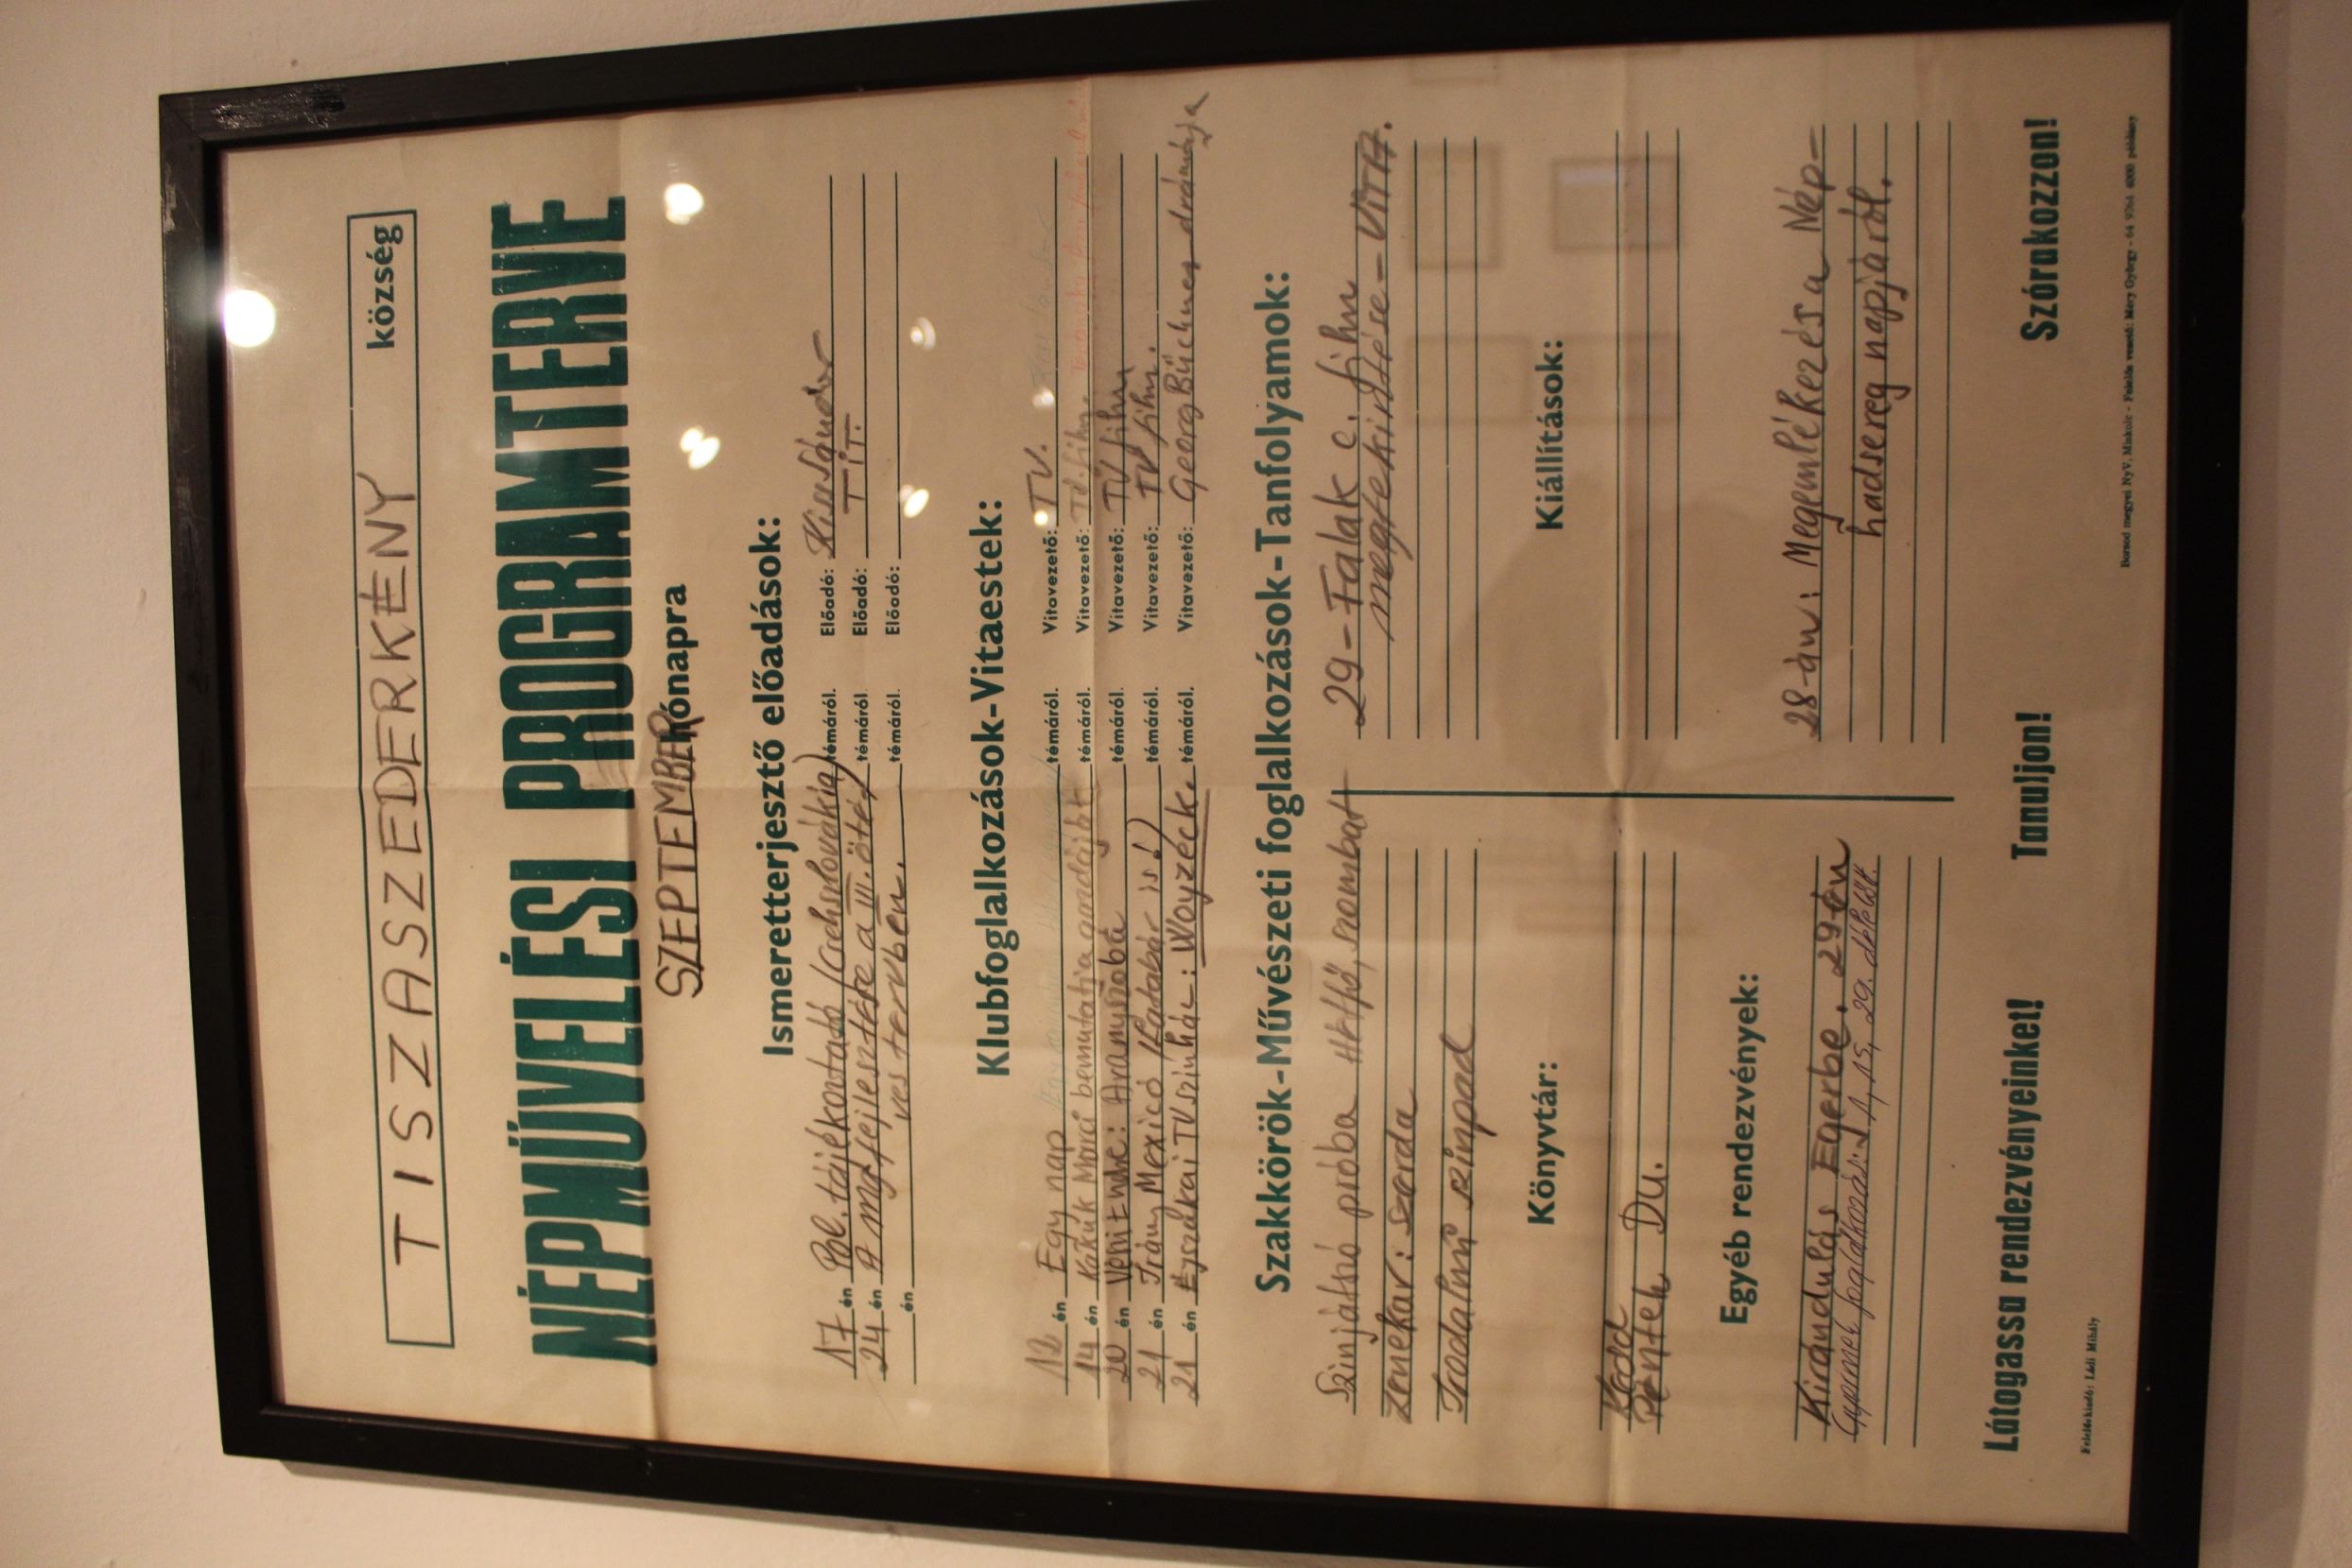 TISZASZEDERKÉNY község
NÉPMŰVELÉSI PROGRAMTERVE
SZEPTEMBER hónapra
Ismeretterjesztő előadások:
17 én Pol. tájékoztató (Csehszlovákia) témáról. Előadó: Kiss Sándor
24 én A mg fejlesztése a III. öté- témáról. Előadó: TIT.
én ves tervben. témáról. Előadó:
Klubfoglalkozások-Vitaestek:
12 én Egy nap témáról. Vitavezető: TV.
14 én Kakuk Marci bemutatja gazdáját témáról. Vitavezető: TV film.
20 én Vészi Endre: Aranyszoba témáról. Vitavezető: TV film
21 én Irány Mexico (Katabár is!) témáról. Vitavezető: TV film.
21 én Éjszakai TV színház: Woyzeck. témáról. Vitavezető: Georg Büchner drámája
Szakkörök-Művészeti foglalkozások-Tanfolyamok:
Szinjátszó próba Hétfő, szombat
Zenekar: szerda
Irodalmi szinpad
29-Falak c. film
megtekintése-VITA.
Könyvtár:
Kedd
Péntek DU.
Kiállítások:
Egyéb rendezvények:
Kirándulás Egerbe. 29-én
Gyermek foglalkozás: 1, 15, 29. délelőtt.
28-án: Megemlékezés a Nép-
hadsereg napjáról.
Látogassa rendezvényeinket! Tanuljon! Szórakozzon!
Felelőskiadó: Ládi Mihály
Borsod megyei NyV. Miskolc - Felelős vezető: Méry György - 64 9764 4000 példány